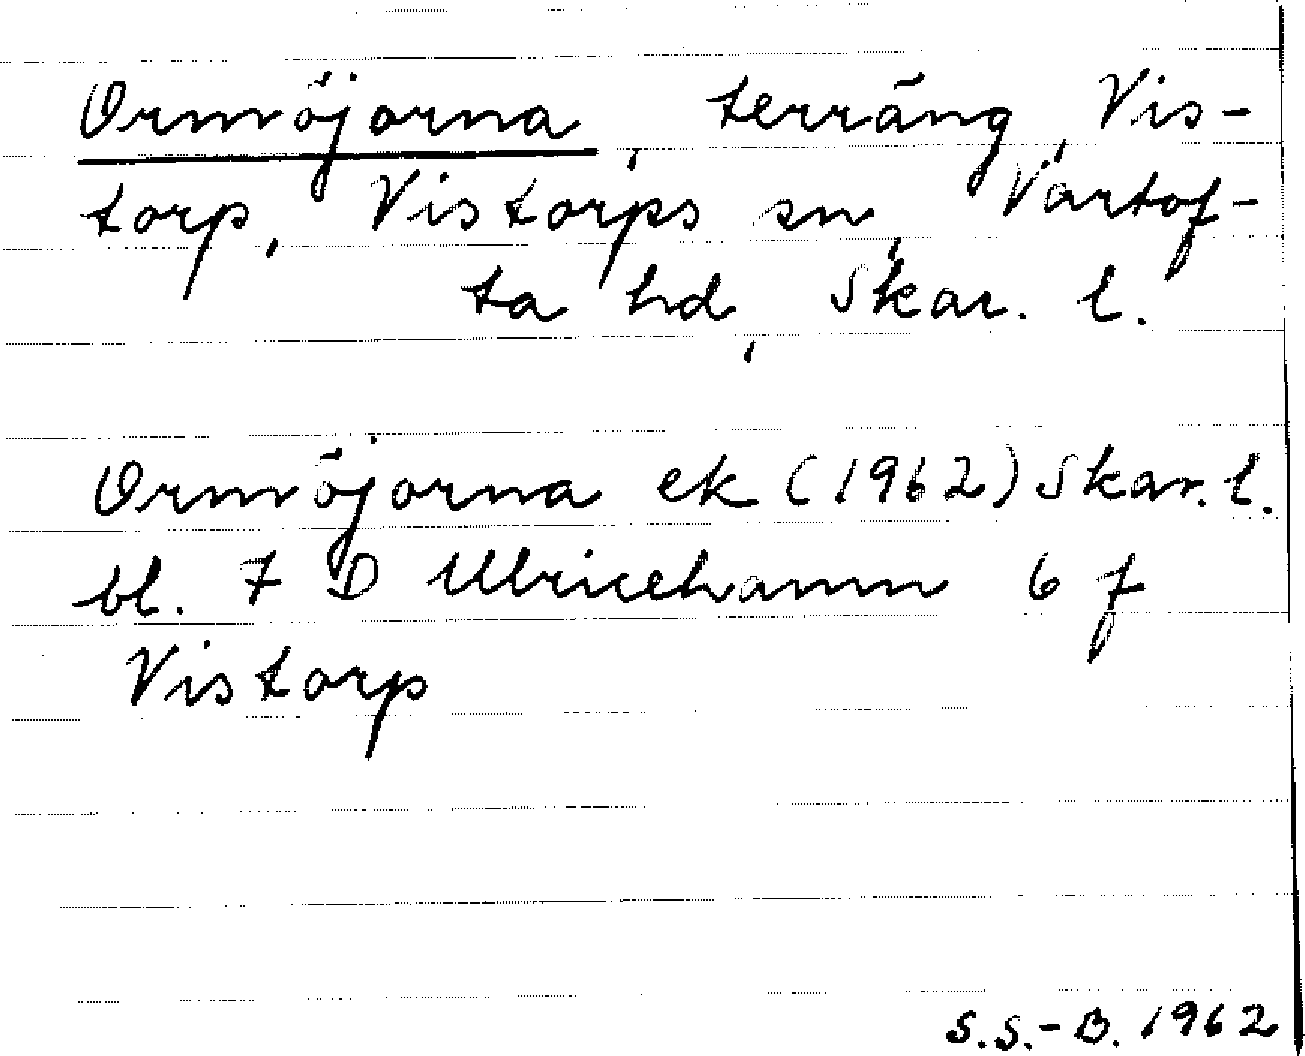 Ormöjorna, terräng, Vis-
torp, Vistorps sn, Vartof-
ta hd, Skar. l.
Ormöjorna ek (1962) Skar. l.
bl. 7 D Ulricehamn 6 f
Vistorp
S.S.-B. 1962